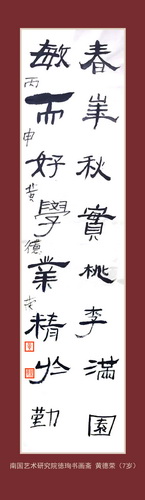 春華秋實桃李滿園
敏而好學業精於勤
丙申黄德荣
南国艺术研究院德珣书画斋 黄德荣（7岁）